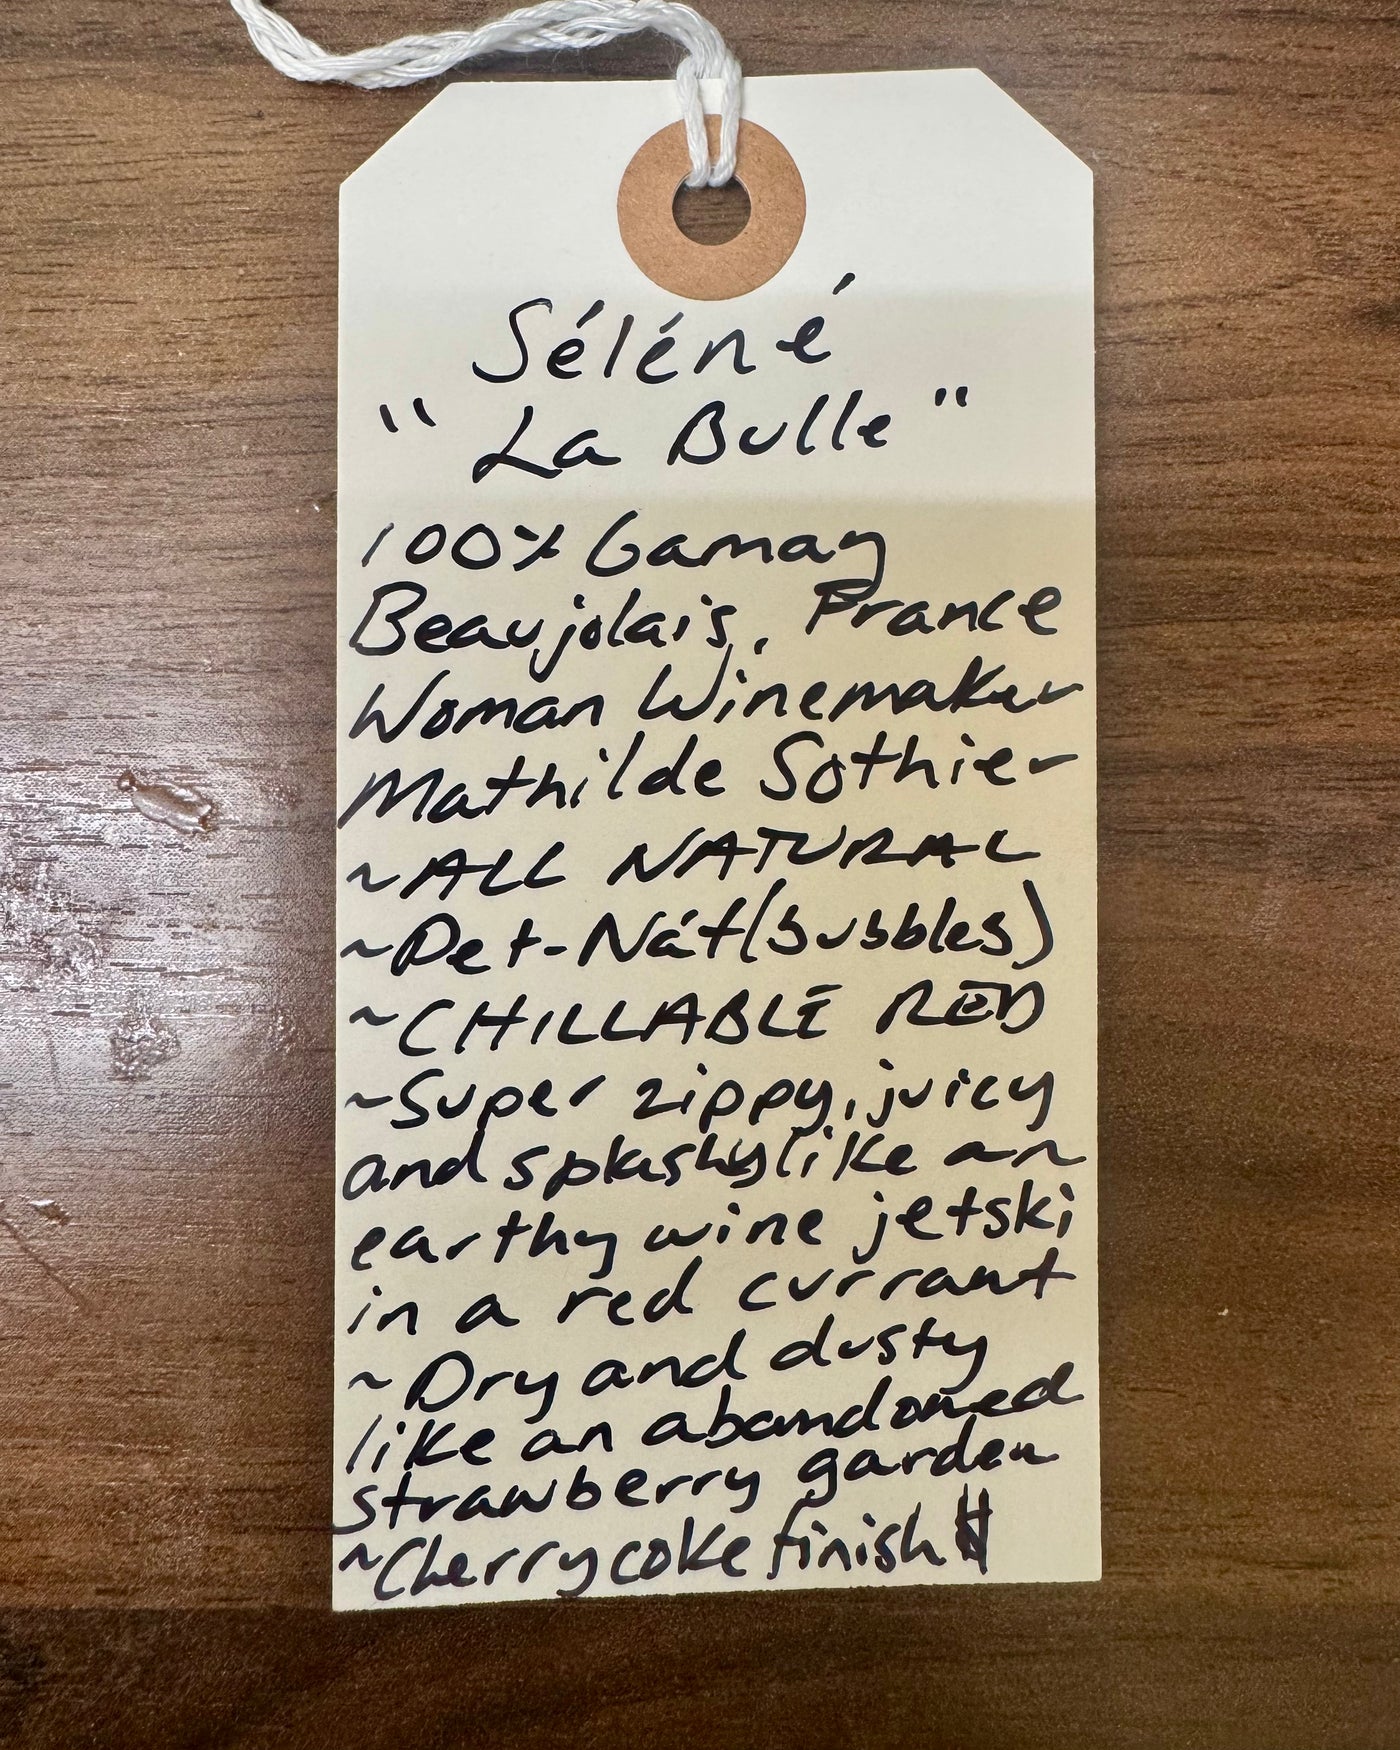 Séléné
"La Bulle"
100% Gamay
Beaujolais, France
Woman Winemaker
Mathilde Sothier
~ALL NATURAL
~Pet-Nát(bubbles)
~CHILLABLE RED
~Super zippy, juicy
and splashy like an
earthy wine jetski
in a red currant
~Dry and dusty
like an abandoned
strawberry garden
~Cherry coke finish